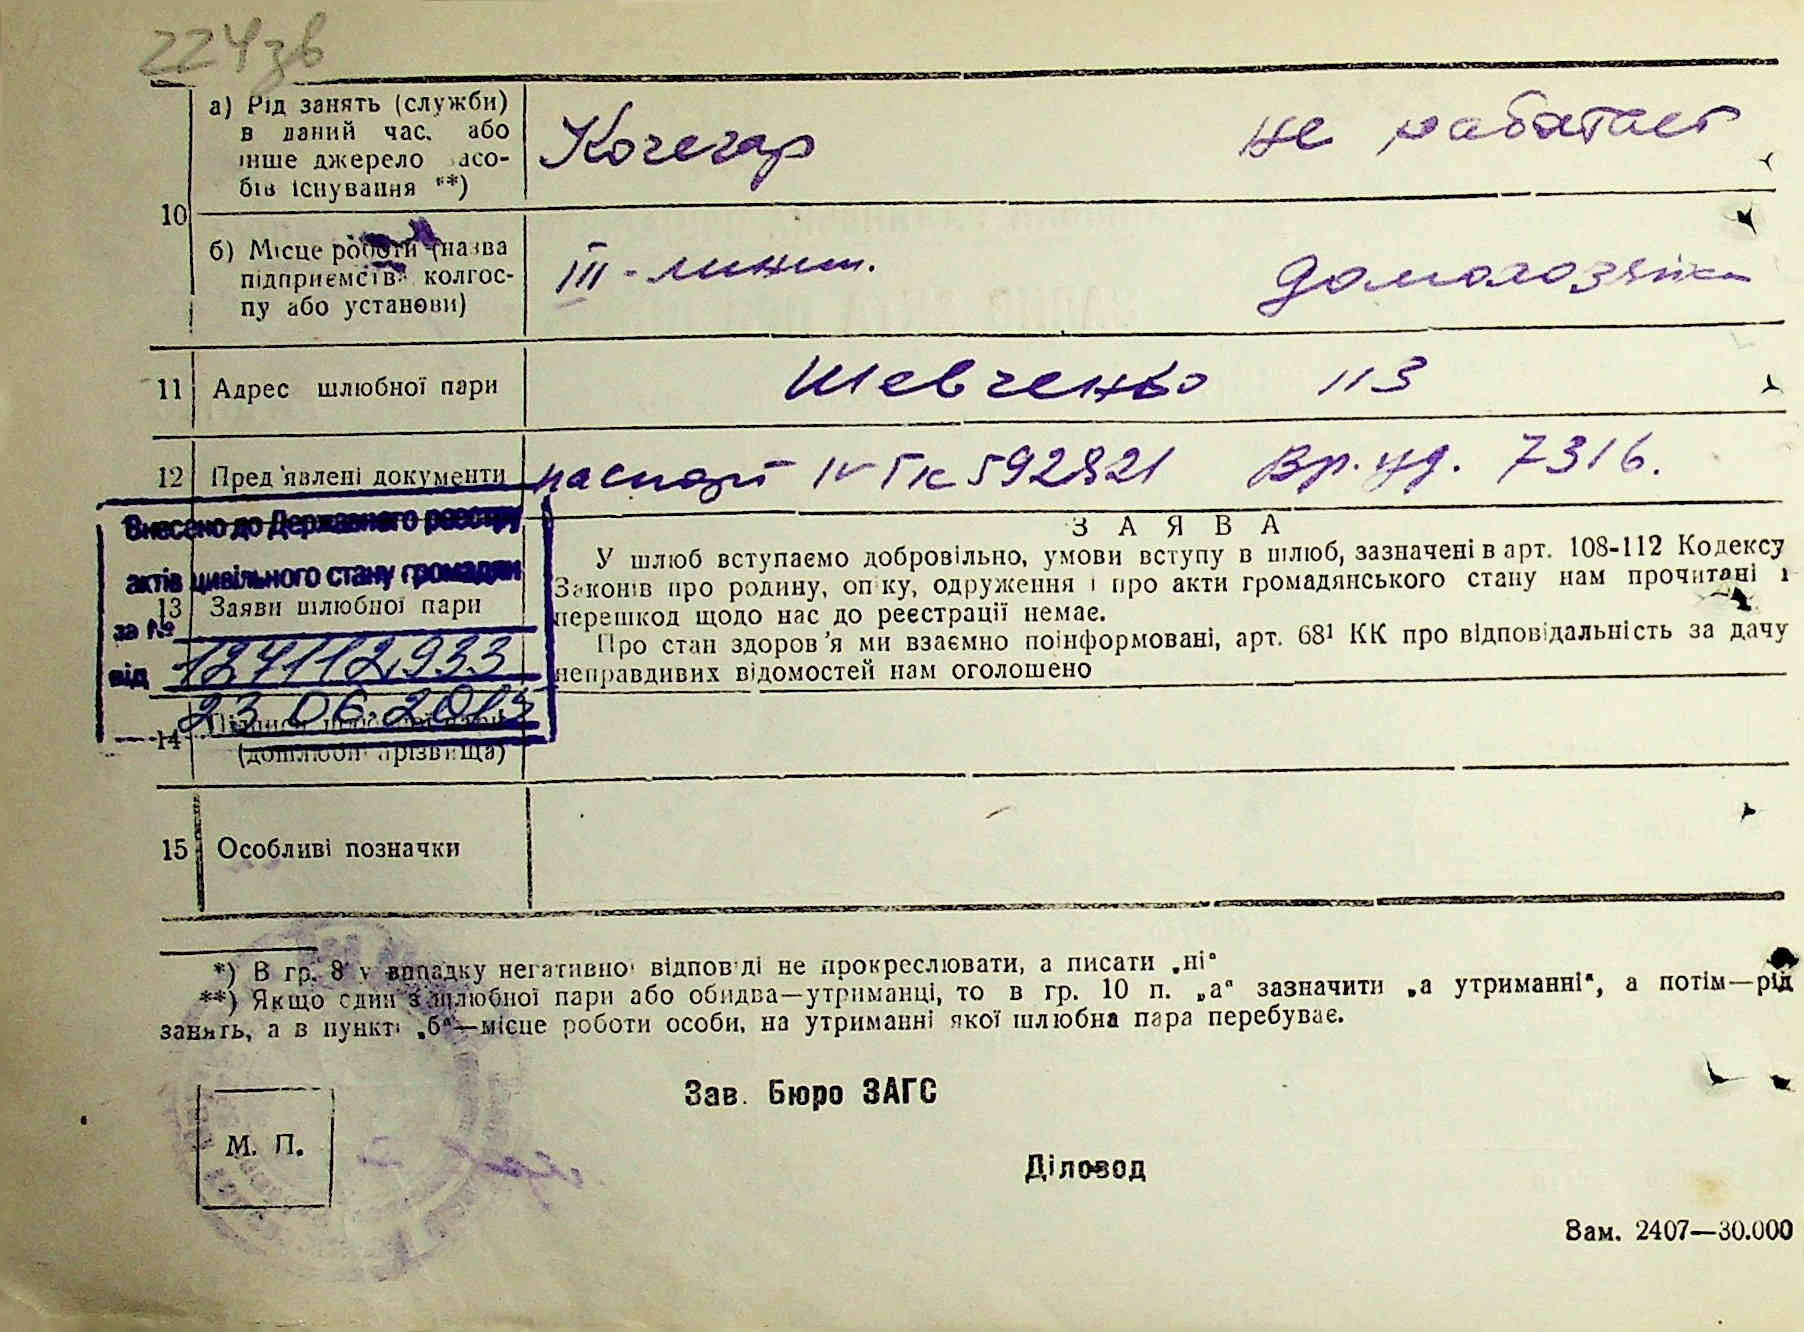 224зв
а) Рід занять (служби)
в даний час. або
інше джерело засо-
бів існування **)
Кочегар не работает
10
б) Місце роботи (назва
підприємств колгос-
пу або установи)
III - домохозяйка
11 Адрес шлюбної пари Шевченко 113
12 Пред'явлені документи паспорт IV ГК 592821 Вр. уд. 7316.
Внесено до Державного реєстру
актів цивільного стану громадян
за № 124112933
від 23.06.2015
13 Заяви шлюбної пари
ЗАЯВА
У шлюб вступаємо добровільно, умови вступу в шлюб, зазначені в арт. 108-112 Кодексу
Законів про родину, опіку, одруження і про акти громадянського стану нам прочитані і
перешкод щодо нас до реєстрації немає.
Про стан здоров'я ми взаємно поінформовані, арт. 68¹ КК про відповідальність за дачу
неправдивих відомостей нам оголошено
14 Підписи шлюбної пари
(дошлюбні прізвища)
15 Особливі позначки
*) В гр. 8 у випадку негативної відповіді не прокреслювати, а писати „ні“
**) Якщо один з шлюбної пари або обидва—утриманці, то в гр. 10 п. „а“ зазначити „а утриманні“, а потім—рід
занять, а в пункті „б“—місце роботи особи, на утриманні якої шлюбна пара перебуває.
Зав. Бюро ЗАГС
М. П.
Діловод
Зам. 2407—30.000